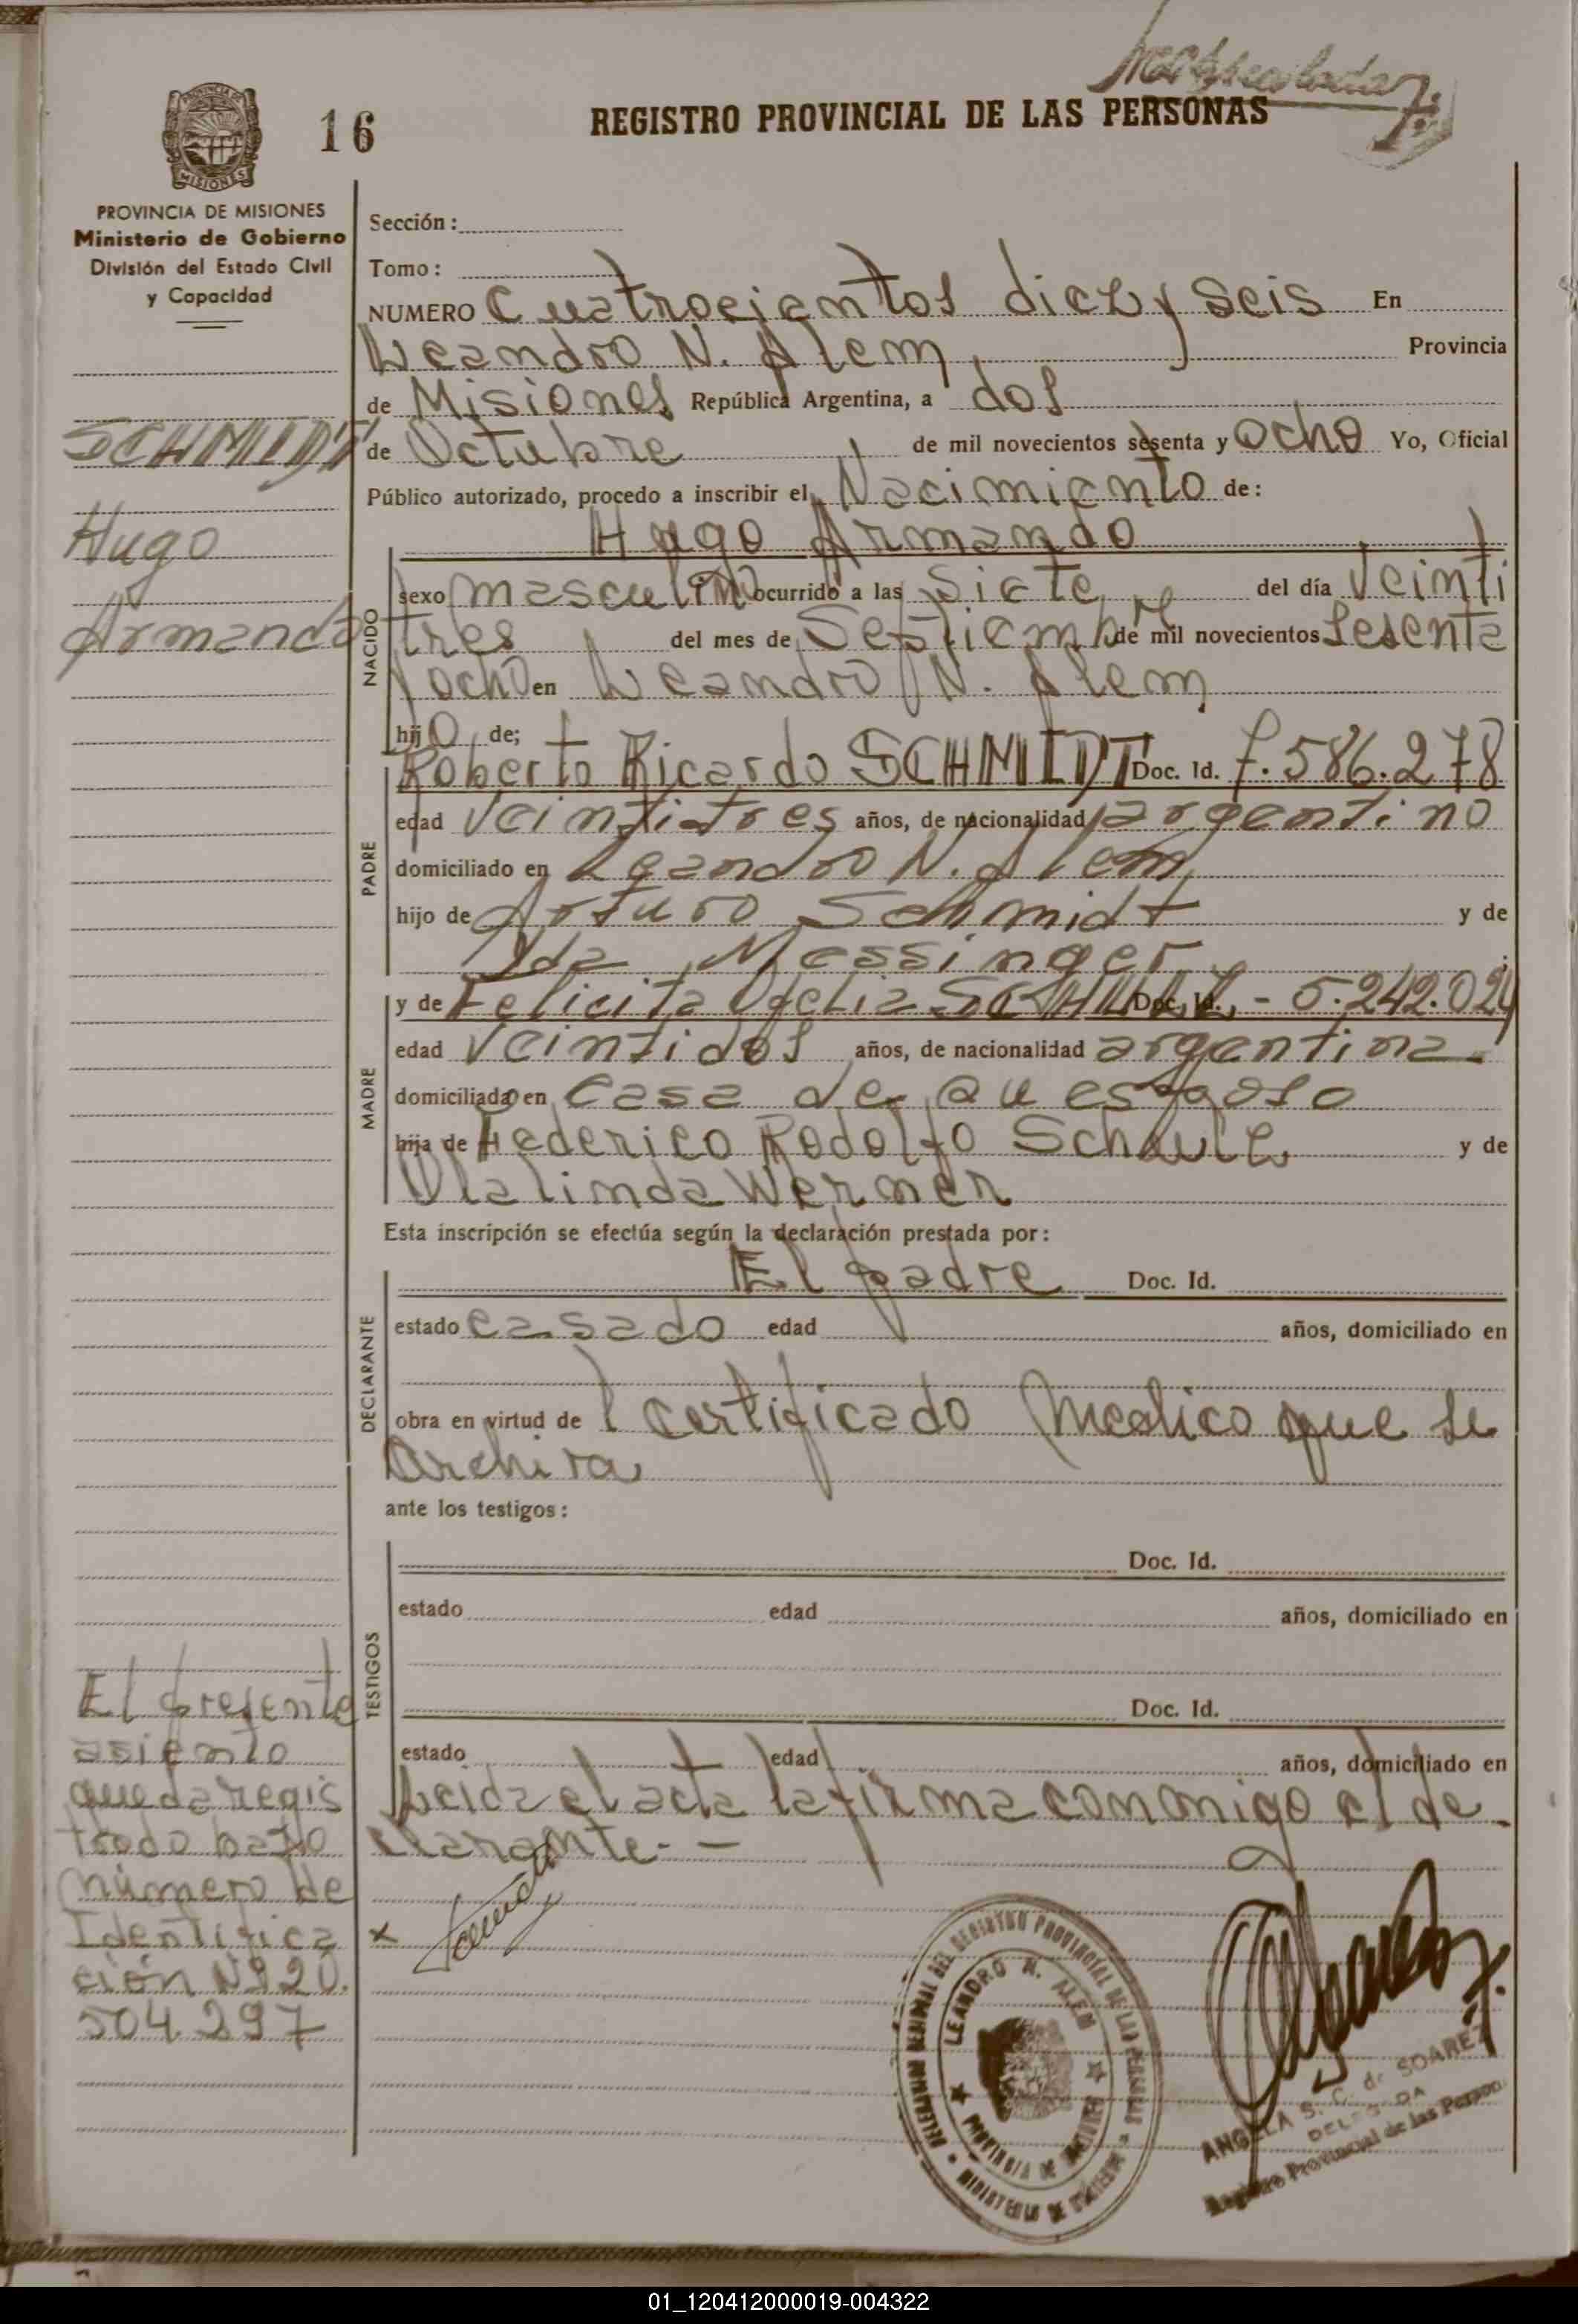 16
REGISTRO PROVINCIAL DE LAS PERSONAS
PROVINCIA DE MISIONES
Ministerio de Gobierno
División del Estado Civil
y Capacidad
SCHMIDT
Hugo
Armando
Sección:
Tomo:
NUMERO Cuatrocientos diez y seis En
Leandro N. Alem Provincia
de Misiones República Argentina, a dos
de Octubre de mil novecientos sesenta y Ocho Yo, Oficial
Público autorizado, procedo a inscribir el Nacimiento de:
Hugo Armando
NACIDO
sexo masculino ocurrido a las siete del día Veinti
tres del mes de Septiembre de mil novecientos sesenta
y ocho en Leandro N. Alem
hijo de;
PADRE
Roberto Ricardo SCHMIDT Doc. Id. 7.586.278
edad Veintitres años, de nacionalidad argentino
domiciliado en Leandro N. Alem
hijo de Arturo Schmidt y de
Ida Messinger
MADRE
y de Felicita Ofelia Doc. Id. - 5.242.024
edad Veintidos años, de nacionalidad argentina
domiciliada en Casa de su esposo
hija de Federico Rodolfo y de
Werner
Esta inscripción se efectúa según la declaración prestada por:
DECLARANTE
El padre Doc. Id.
estado casado edad años, domiciliado en
obra en virtud de l certificado Medico que se
archiva
ante los testigos:
TESTIGOS
Doc. Id.
estado edad años, domiciliado en
Doc. Id.
estado edad años, domiciliado en
Leida el acta la firma conmigo el de
clarante. - -
El presente
asiento
queda regis
trado bajo
número de
Identifica
ción Nº 20.
504.297
x
DELEGACION DEL REGISTRO PROVINCIAL DE LAS PERSONAS
LEANDRO N. ALEM
PROVINCIA DE MISIONES
ANGELA S. C. de SOAREZ
DELEGADA
Registro Provincial de las Person
01_120412000019-004322